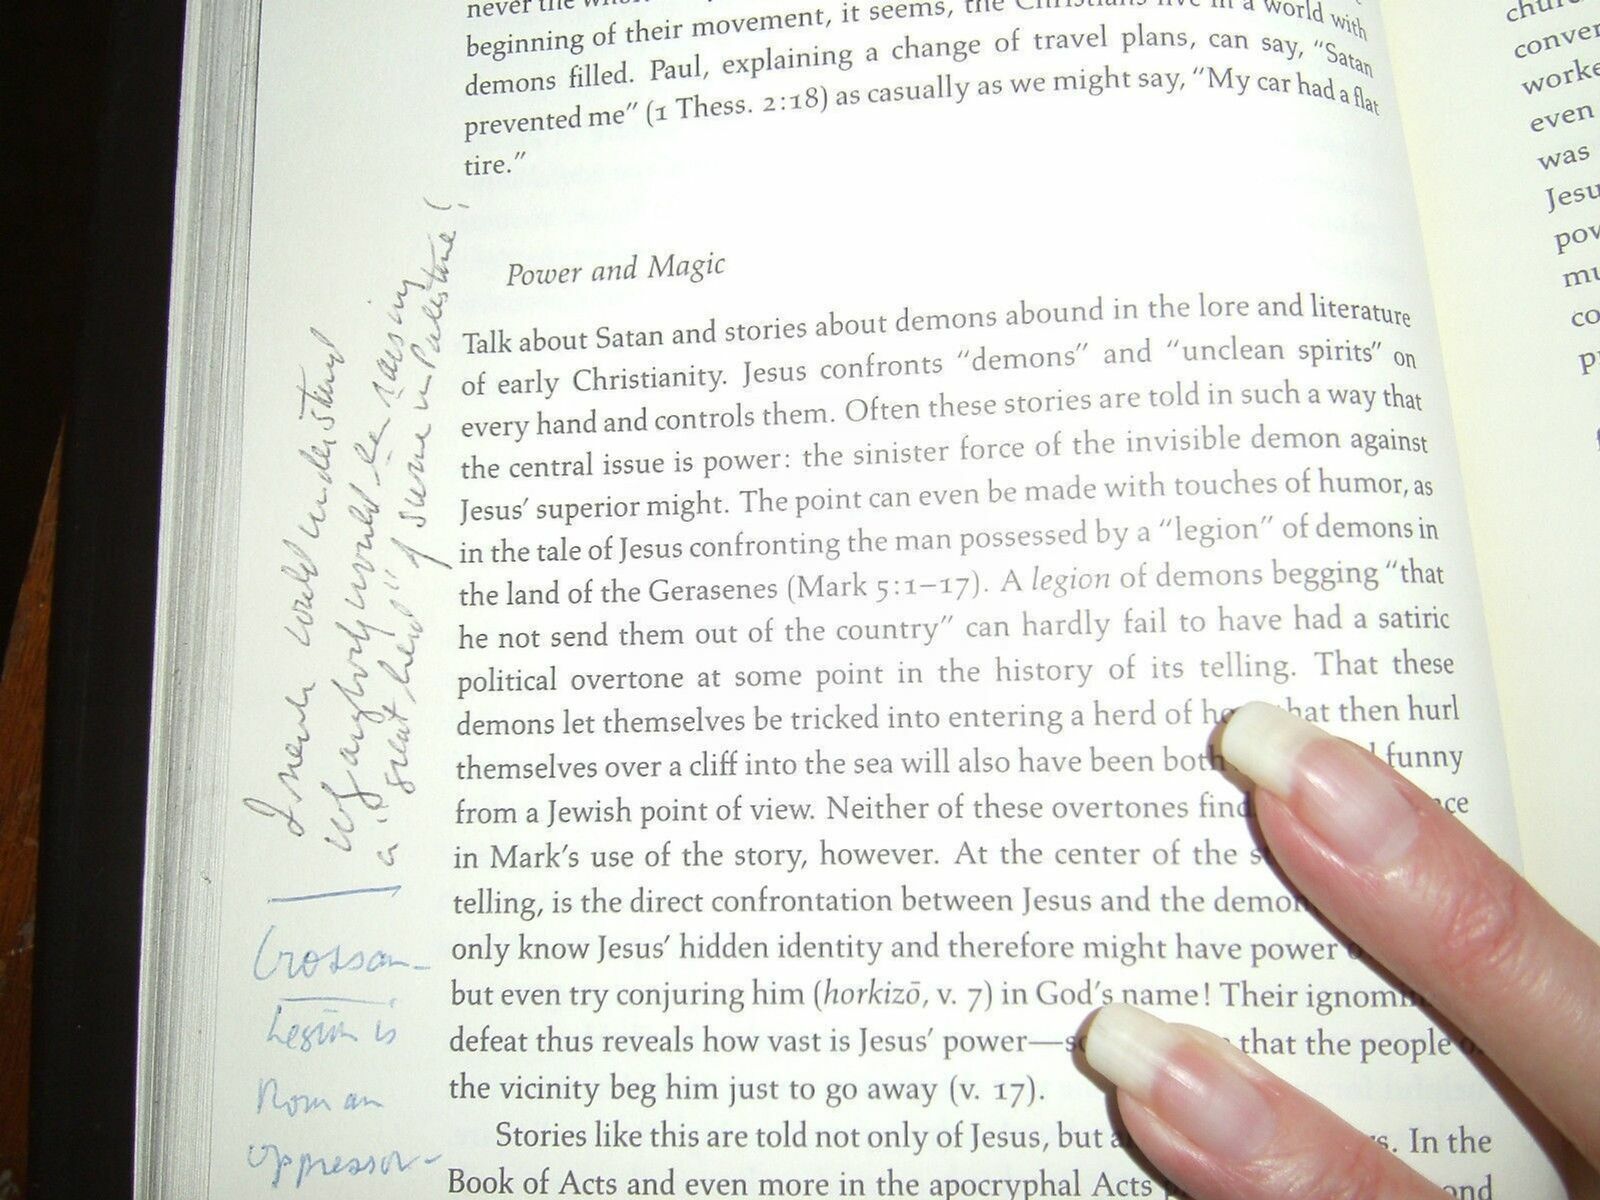 never the
beginning of their movement, it seems, the Christians live in a world with
demons filled. Paul, explaining a change of travel plans, can say, "Satan
prevented me" (1 Thess. 2:18) as casually as we might say, "My car had a flat
tire."
Power and Magic
Talk about Satan and stories about demons abound in the lore and literature
of early Christianity. Jesus confronts "demons" and "unclean spirits" on
every hand and controls them. Often these stories are told in such a way that
the central issue is power: the sinister force of the invisible demon against
Jesus' superior might. The point can even be made with touches of humor, as
in the tale of Jesus confronting the man possessed by a "legion" of demons in
the land of the Gerasenes (Mark 5:1–17). A legion of demons begging "that
he not send them out of the country" can hardly fail to have had a satiric
political overtone at some point in the history of its telling. That these
demons let themselves be tricked into entering a herd of that then hurl
themselves over a cliff into the sea will also have been both funny
from a Jewish point of view. Neither of these overtones
in Mark's use of the story, however. At the center of the
telling, is the direct confrontation between Jesus and the
only know Jesus' hidden identity and therefore might have power
but even try conjuring him (horkizō, v. 7) in God's name! Their
defeat thus reveals how vast is Jesus' power— that the people
the vicinity beg him just to go away (v. 17).
Stories like this are told not only of Jesus, but In the
Book of Acts and even more in the apocryphal Acts
I never could understand
why anybody would be raising
a "great herd" of swine in Palestine!
Crossan–
Legion is
Roman
oppressor–
conver
worke
even
was
Jesu
pow
mu
co